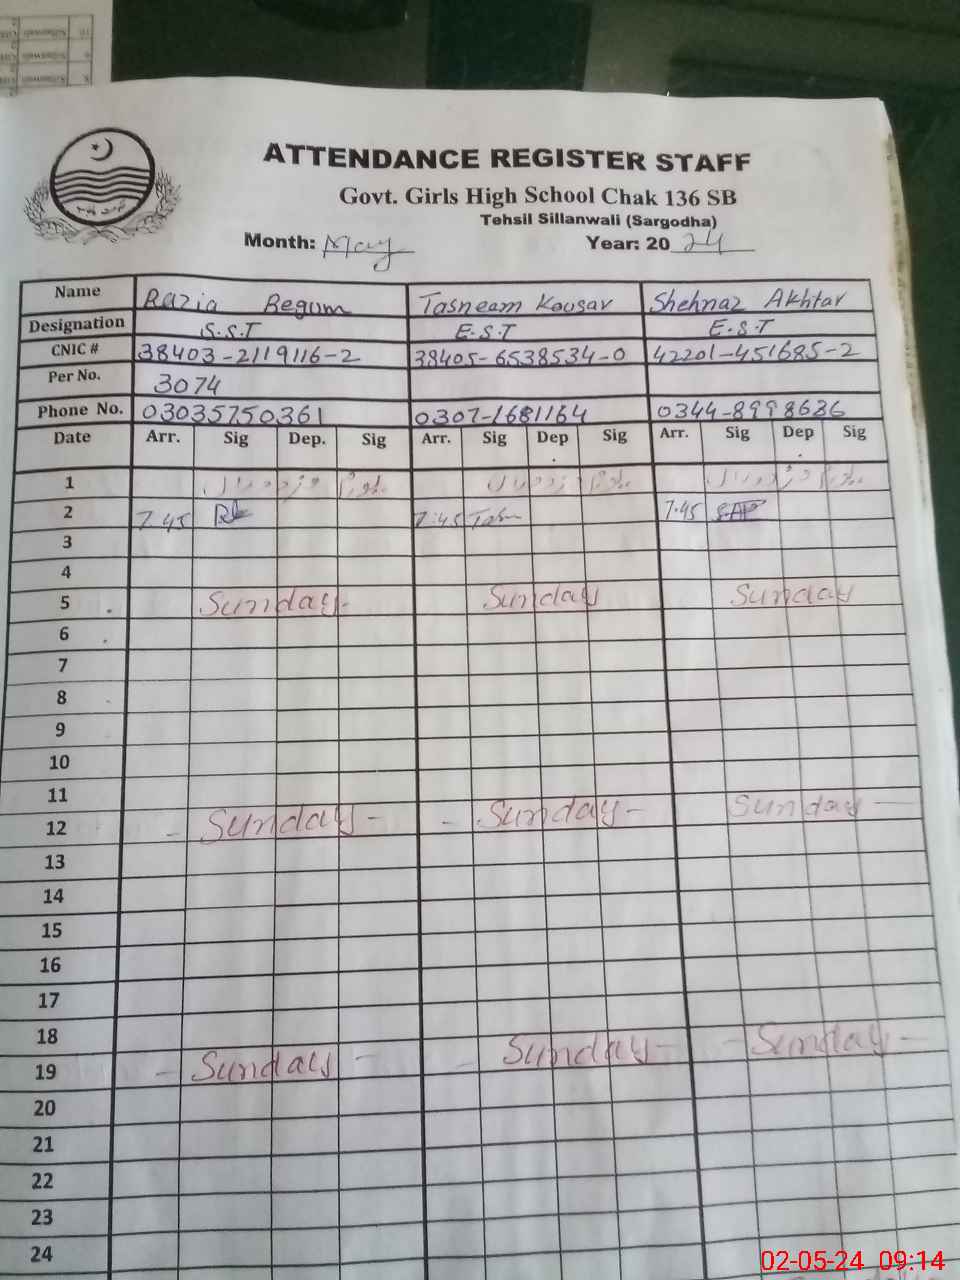 ATTENDANCE REGISTER STAFF
Govt. Girls High School Chak 136 SB
Tehsil Sillanwali (Sargodha)
Month: May Year: 2024
Name Razia Begum Tasneem Kousar Shehnaz Akhtar
Designation S.S.T E.S.T E.S.T
CNIC # 38403-2119116-2 38405-6538534-0 42201-451685-2
Per No. 3074
Phone No. 03035750361 0307-1681164 0344-8998686
Date Arr. Sig Dep. Sig Arr. Sig Dep Sig Arr. Sig Dep Sig
1
2 7.45 7:45 7.45
3
4
5 Sunday Sunday Sunday
6
7
8
9
10
11
12 Sunday Sunday Sunday
13
14
15
16
17
18
19 Sunday Sunday Sunday
20
21
22
23
24
02-05-24 09:14